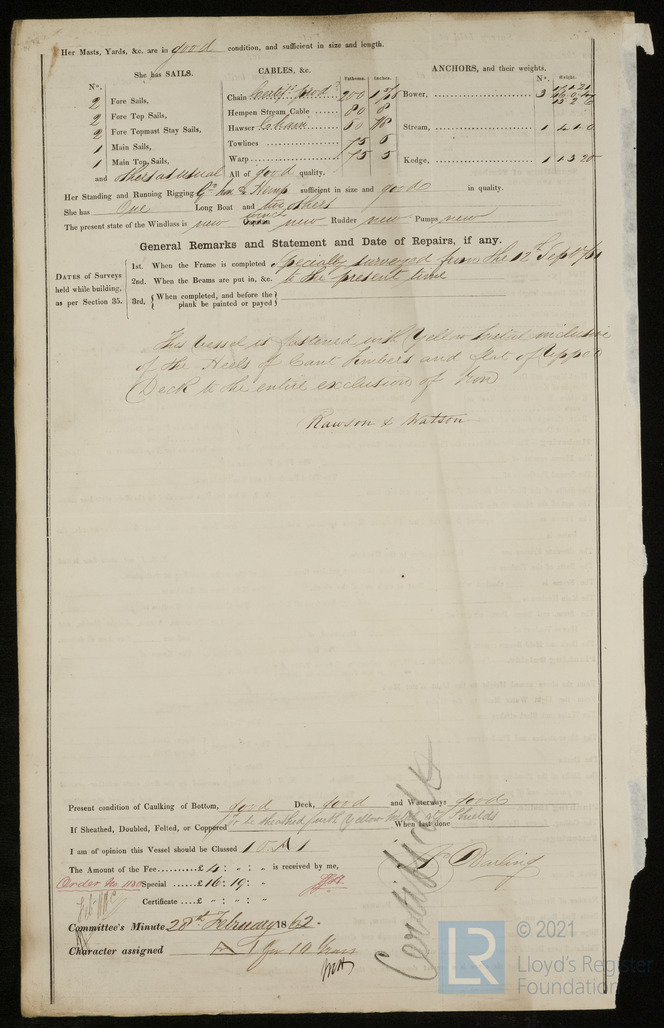 Her Masts, Yards, &c. are in good condition, and sufficient in size and length.
She has SAILS.
CABLES, &c.
Fathoms. Inches.
ANCHORS, and their weights.
Nº.
Nº. Weight.
2 Fore Sails,
Chain 200
Bower, 3
2 Fore Top Sails,
Hempen Stream Cable 80 8
2 Fore Topmast Stay Sails,
Hawser Chain
Stream, 1 4.1.0
1 Main Sails,
Towlines 75 6
1 Main Top Sails,
Warp 75 5
Kedge, 1 1.3.20
and others as usual
All of good quality.
Her Standing and Running Rigging Hemp sufficient in size and good in quality.
She has One Long Boat and two others
The present state of the Windlass is new winch new Rudder new Pumps new
General Remarks and Statement and Date of Repairs, if any.
DATES of Surveys held while building, as per Section 35.
1st. When the Frame is completed Specially surveyed from the 12th Sept
2nd. When the Beams are put in, &c. to the present time
3rd. { When completed, and before the plank be painted or payed }
This Vessel is fastened with Yellow Metal inclusive
of the Heels of Cant Timbers and flat of Upper
Deck to the entire exclusion of Iron
Rawson & Watson
Present condition of Caulking of Bottom, good Deck, good and Waterways good
If Sheathed, Doubled, Felted, or Coppered To be sheathed with Yellow Metal at Shields When last done
I am of opinion this Vessel should be Classed
The Amount of the Fee......£ 4 : „ : „ is received by me,
Order No Special ......£ 16 : 19 : „
Certificate ... £ „ : „ : „
Darling
Certificate
Committee's Minute 28th February 1862.
Character assigned 10 Years
LR
© 2021
Lloyd's Register
Foundation